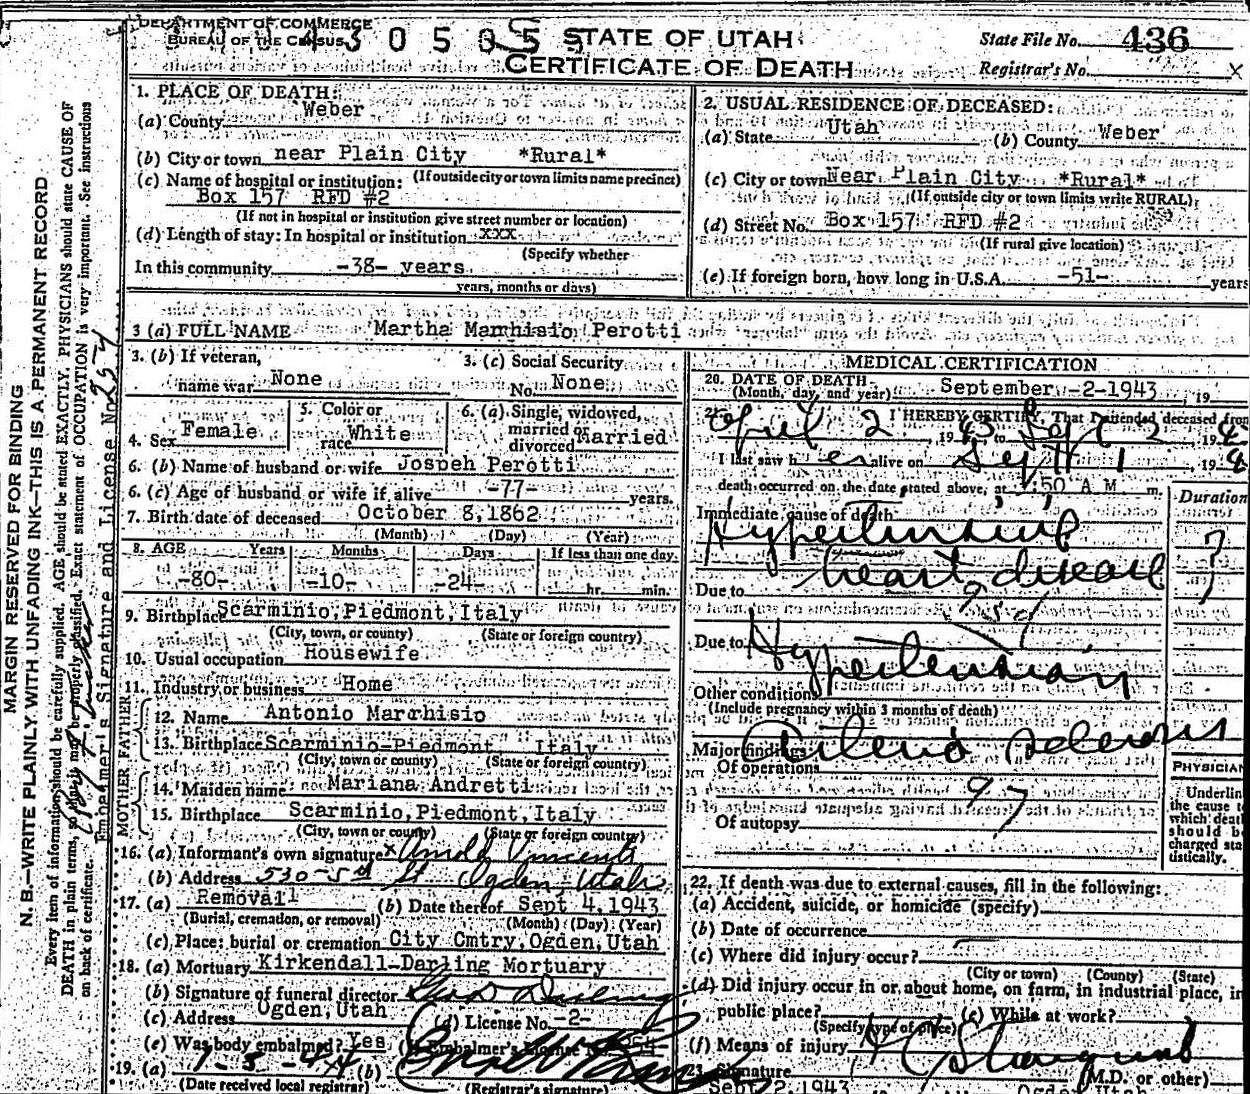 DEPARTMENT OF COMMERCE
BUREAU OF THE CENSUS
STATE OF UTAH
CERTIFICATE OF DEATH
State File No. 436
Registrar's No. X
MARGIN RESERVED FOR BINDING
N. B.—WRITE PLAINLY WITH UNFADING INK—THIS IS A PERMANENT RECORD
Every item of information should be carefully supplied. AGE should be stated EXACTLY. PHYSICIANS should state CAUSE OF
DEATH in plain terms, so that it may be properly classified. Exact statement of OCCUPATION is very important. See instructions
on back of certificate.
Embalmer's Signature and License No. 254
1. PLACE OF DEATH:
(a) County Weber
(b) City or town near Plain City *Rural*
(If outside city or town limits name precinct)
(c) Name of hospital or institution:
Box 157 RFD #2
(If not in hospital or institution give street number or location)
(d) Length of stay: In hospital or institution xxx
(Specify whether
In this community -38- years
years, months or days)
2. USUAL RESIDENCE OF DECEASED:
(a) State Utah (b) County Weber
(c) City or town Near Plain City *Rural*
(If outside city or town limits write RURAL)
(d) Street No. Box 157 RFD #2
(If rural give location)
(e) If foreign born, how long in U.S.A. -51- years
3 (a) FULL NAME Martha Marhisio Perotti
3. (b) If veteran,
name war None
3. (c) Social Security
No. None
4. Sex Female
5. Color or
race White
6. (a) Single, widowed,
married or
divorced Married
6. (b) Name of husband or wife Jospeh Perotti
6. (c) Age of husband or wife if alive -77- years.
7. Birth date of deceased October 8,1862
(Month) (Day) (Year)
8. AGE Years Months Days If less than one day
-80- -10- -24- hr. min.
9. Birthplace Scarminio,Piedmont,Italy
(City, town, or county) (State or foreign country)
10. Usual occupation Housewife
11. Industry or business Home
FATHER
12. Name Antonio Marchisio
13. Birthplace Scarminio-Piedmont, Italy
(City, town or county) (State or foreign country)
MOTHER
14. Maiden name Mariana Andretti
15. Birthplace Scarminio,Piedmont,Italy
(City, town or county) (State or foreign country)
16. (a) Informant's own signature x Arnold Vincenti
(b) Address 530-5th St Ogden, Utah
17. (a) Removal (b) Date thereof Sept 4,1943
(Burial, cremation, or removal) (Month) (Day) (Year)
(c) Place: burial or cremation City Cmtry,Ogden,Utah
18. (a) Mortuary Kirkendall-Darling Mortuary
(b) Signature of funeral director
(c) Address Ogden,Utah (d) License No. -2-
(e) Was body embalmed? Yes (f) Embalmer's License No. 254
19. (a) 1-5-44 (b)
(Date received local registrar) (Registrar's signature)
MEDICAL CERTIFICATION
20. DATE OF DEATH
(Month, day, and year) September -2-1943, 19
21. I HEREBY CERTIFY, That I attended deceased from
April 2, 1943 to Sept 2, 194
I last saw her alive on Sept 1, 194
death occurred on the date stated above, at :50 A M m.
Duration
Immediate cause of death
Hypertensive
heart disease ?
Due to
93d
Due to Hypertension
Other conditions
(Include pregnancy within 3 months of death)
Arterio sclerosis
Major findings
Of operations
97
Of autopsy
PHYSICIAN
Underlin
the cause t
which deat
should b
charged sta
tistically.
22. If death was due to external causes, fill in the following:
(a) Accident, suicide, or homicide (specify)
(b) Date of occurrence
(c) Where did injury occur?
(City or town) (County) (State)
(d) Did injury occur in or about home, on farm, in industrial place, in
public place? (e) While at work?
(Specify type of place)
(f) Means of injury
23. Signature (M.D. or other)
Sept 2,1943 Ogden Utah